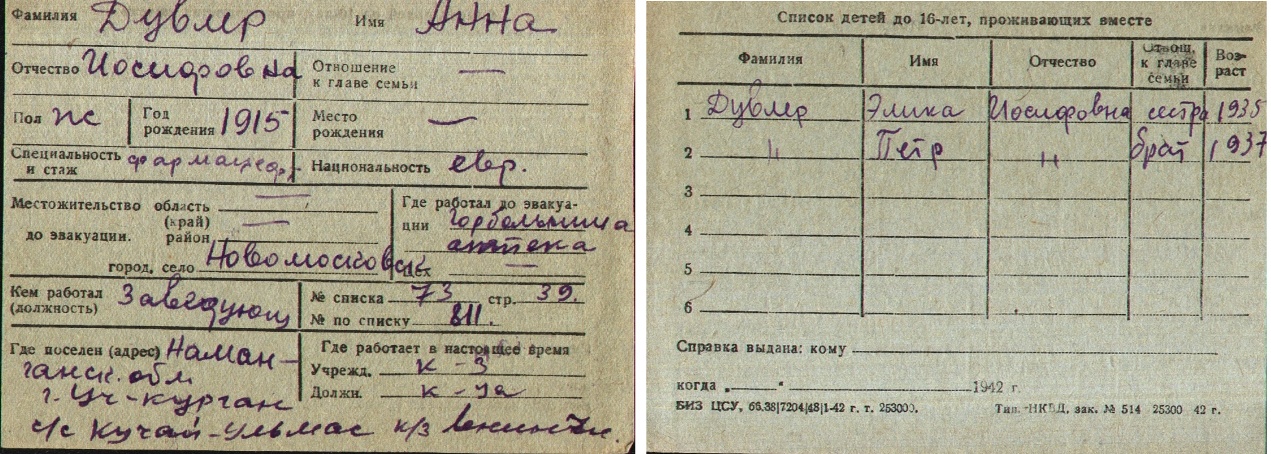 Фамилия Дувлер Имя Анна
Отчество Иосифовна Отношение к главе семьи —
Пол жс Год рождения 1915 Место рождения —
Специальность и стаж фармацевт Национальность евр.
Местожительство до эвакуации. область —
(край) район —
город, село Новомосковск
Где работал до эвакуации горбольница аптека
Цех —
Кем работал (должность) Заведующ
№ списка 73 стр. 39.
№ по списку 811.
Где поселен (адрес) Наман-
ганск. обл
г. Уч-Курган
с/с Кучай-Ульмас к/з
Где работает в настоящее время
Учрежд. к-з
Должн. к-ца
Список детей до 16-лет, проживающих вместе
Фамилия Имя Отчество Отнош. к главе семьи Возраст
1 Дувлер Элика Иосифовна сестра 1935
2 " Петр " брат 1937
3
4
5
6
Справка выдана: кому
когда „ “ 1942 г.
БИЗ ЦСУ, 66.38|7204|48|1-42 г. т. 253000. Тип. НКВД, зак. № 514 25300 42 г.